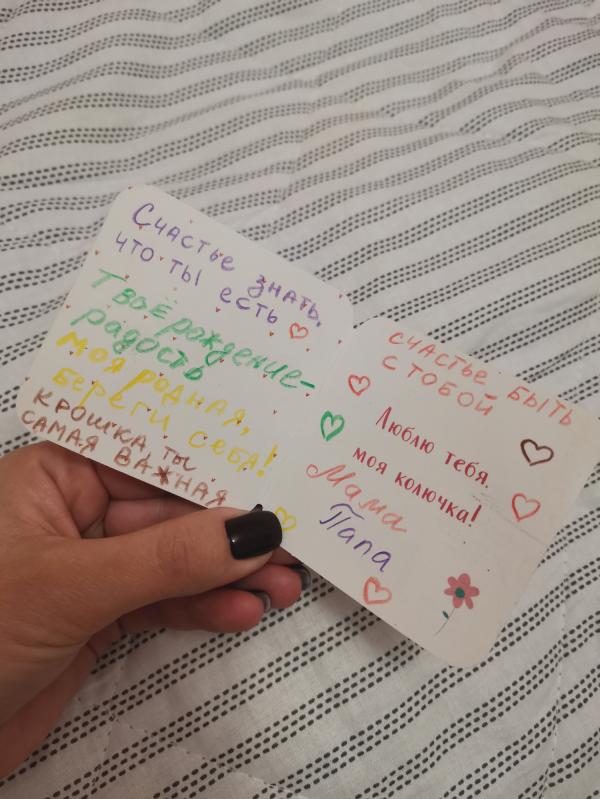 Счастье знать,
что ты есть
Твоё рождение-
радость
Моя родная,
береги себя!
крошка ты
самая важная
счастье быть
с тобой
Люблю тебя,
моя колючка!
Мама
Папа